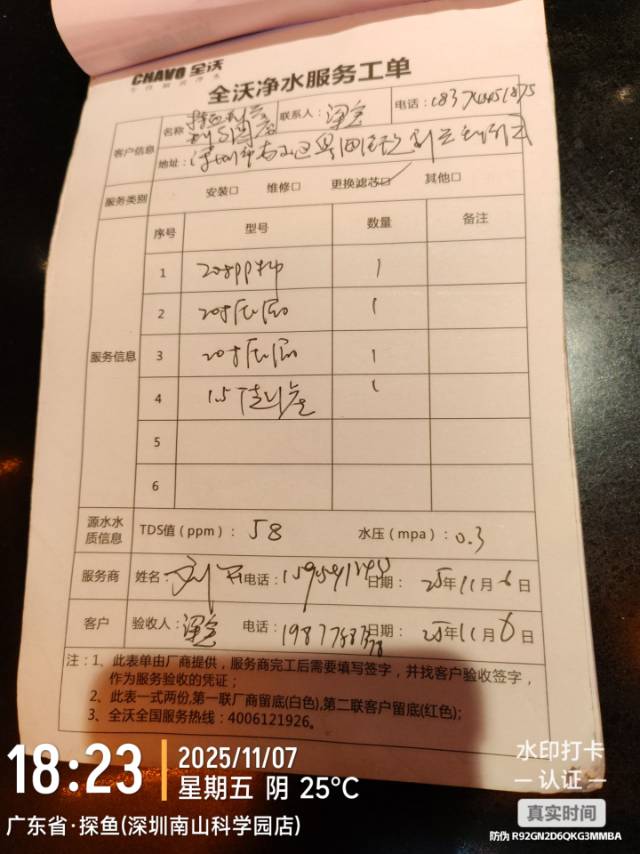 CHAVO 全沃
全沃净水服务工单
客户信息
名称： 联系人：梁宝 电话：
地址：深圳市南山区
服务类别 安装□ 维修□ 更换滤芯☑ 其他□
服务信息
序号 型号 数量 备注
1 20寸PP棉 1
2 20寸 1
3 20寸 1
4 1.5 1
5
6
源水水质信息 TDS值（ppm）：58 水压（mpa）：0.3
服务商 姓名：刘 电话： 日期：25年11月6日
客户 验收人：梁宝 电话： 日期：25年11月6日
注：1、此表单由厂商提供，服务商完工后需要填写签字，并找客户验收签字，
作为服务验收的凭证；
2、此表一式两份,第一联厂商留底(白色),第二联客户留底(红色);
3、全沃全国服务热线：4006121926。
18:23
2025/11/07
星期五 阴 25°C
广东省·探鱼(深圳南山科学园店)
水印打卡
认证
真实时间
防伪 R92GN2D6QKG3MMBA